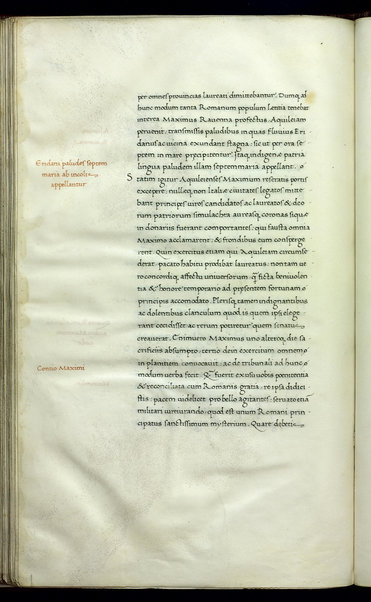 per omnes provincias laureati dimittebantur. Dumq; ad
hunc modum tanta Romanum populum lentia tenebat
interea Maximus Ravenna profectus Aquileiam
pervenit, transmissis paludibus in quas fluvius Eri-
danus ac vicina exundant stagna: sic ut per ora se-
ptem in mare precipitentur. Itaq; indigene patria
lingua paludem illam septem maria appellant.
Statim igitur Aquileienses Maximum reseratis portis
excepere: nulleq; non Italie civitates legatos mitte-
bant principes viros candidatos ac laureatos & deo-
rum patriorum simulachra aureasq; coronas siquę
in donariis fuerant comportantes: qui fausta omnia
Maximo acclamarent: & frondibus eum consperge-
rent. Quin exercitus etiam qui Aquileiam circumse-
derat, pacato habitu prodibat laureatus: non tam ve-
ro concordiq; affectu universorum q̃ ficta benivolen-
tia & honore temporario ad presentem fortunam
principis accomodato. Plerisq; tamen indignantibus
ac dolentibus clanculum quod is quem ipsi elege-
rant cecidisset ac rerum potiretur quem senatus
creaverat. Enimvero Maximus uno alteroq; die sa-
crificiis absumpto: tertio dein exercitum omnem
in planitiem convocavit: ac de tribunali ad hunc
modum verba fecit. Q̃ fuerit ex usu vobis poenitentia
& reconciliata cum Romanis gratia re ipsa didici-
stis: pacem videlicet pro bello agitantes: servato etiã
militari iureiurando: quod est unum Romani prin-
cipatus sanctissimum mysterium. Quare debetis
Eridani paludes septem
maria ab incolis
appellantur
Contio Maximi